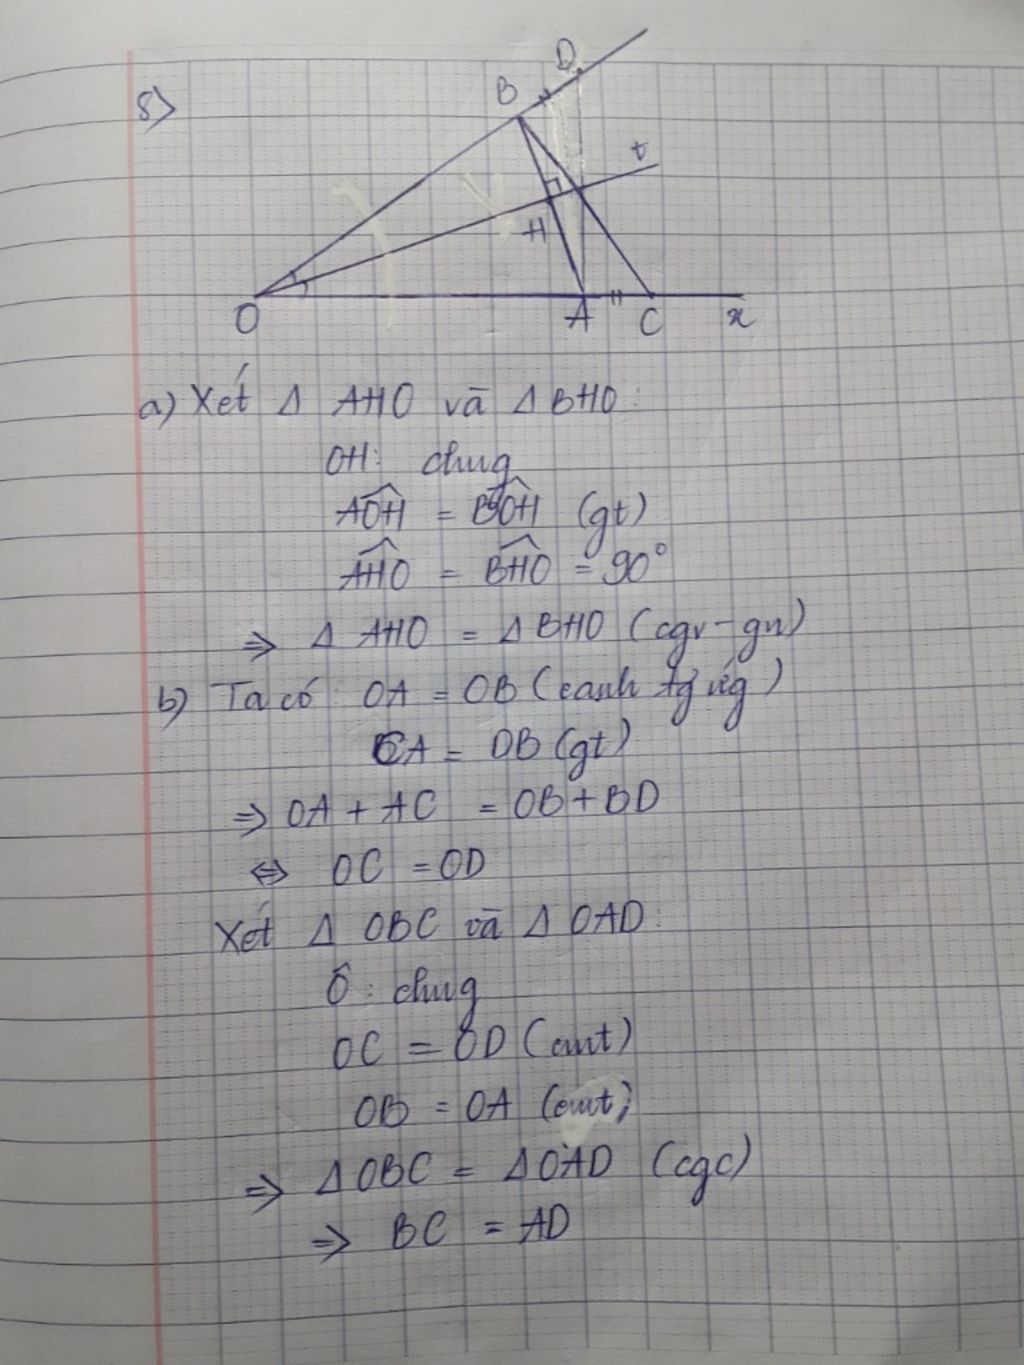 8)
D
B
t
H
O
A
C
x
a) Xét Δ AHO và Δ BHO:
OH: chug
AOH = BOH (gt)
AHO = BHO = 90°
⇒ Δ AHO = Δ BHO (cgv - gn)
b) Ta có: OA = OB (cạnh tg ứg)
CA = DB (gt)
⇒ OA + AC = OB + BD
⇔ OC = OD
Xét Δ OBC và Δ OAD:
Ô: chug
OC = OD (cmt)
OB = OA (cmt)
⇒ Δ OBC = Δ OAD (cgc)
⇒ BC = AD